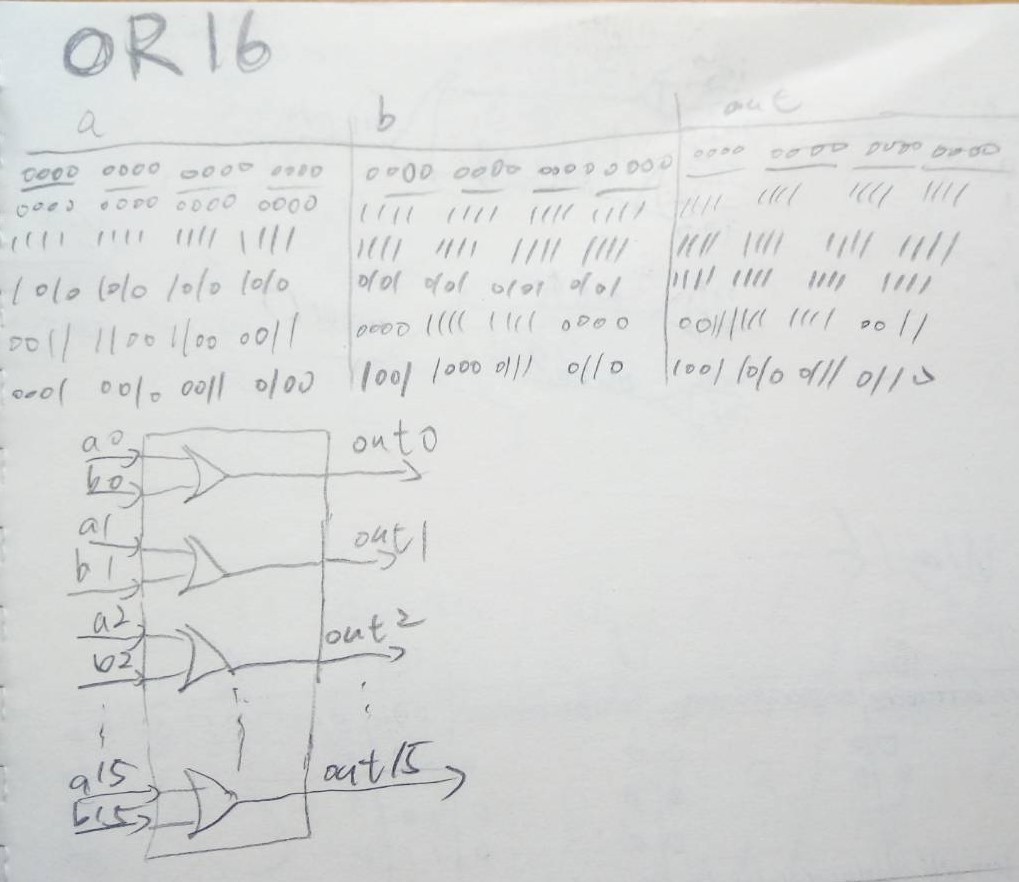 OR16
a b out
0000 0000 0000 0000 0000 0000 0000 0000 0000 0000 0000 0000
0000 0000 0000 0000 1111 1111 1111 1111 1111 1111 1111 1111
1111 1111 1111 1111 1111 1111 1111 1111 1111 1111 1111 1111
1010 1010 1010 1010 0101 0101 0101 0101 1111 1111 1111 1111
0011 1100 1100 0011 0000 1111 1111 0000 0011 1111 1111 0011
0001 0010 0011 0100 1001 1000 0111 0110 1001 1010 0111 0110
a0
out0
b0
a1
out1
b1
a2
out2
b2
a15
out15
b15